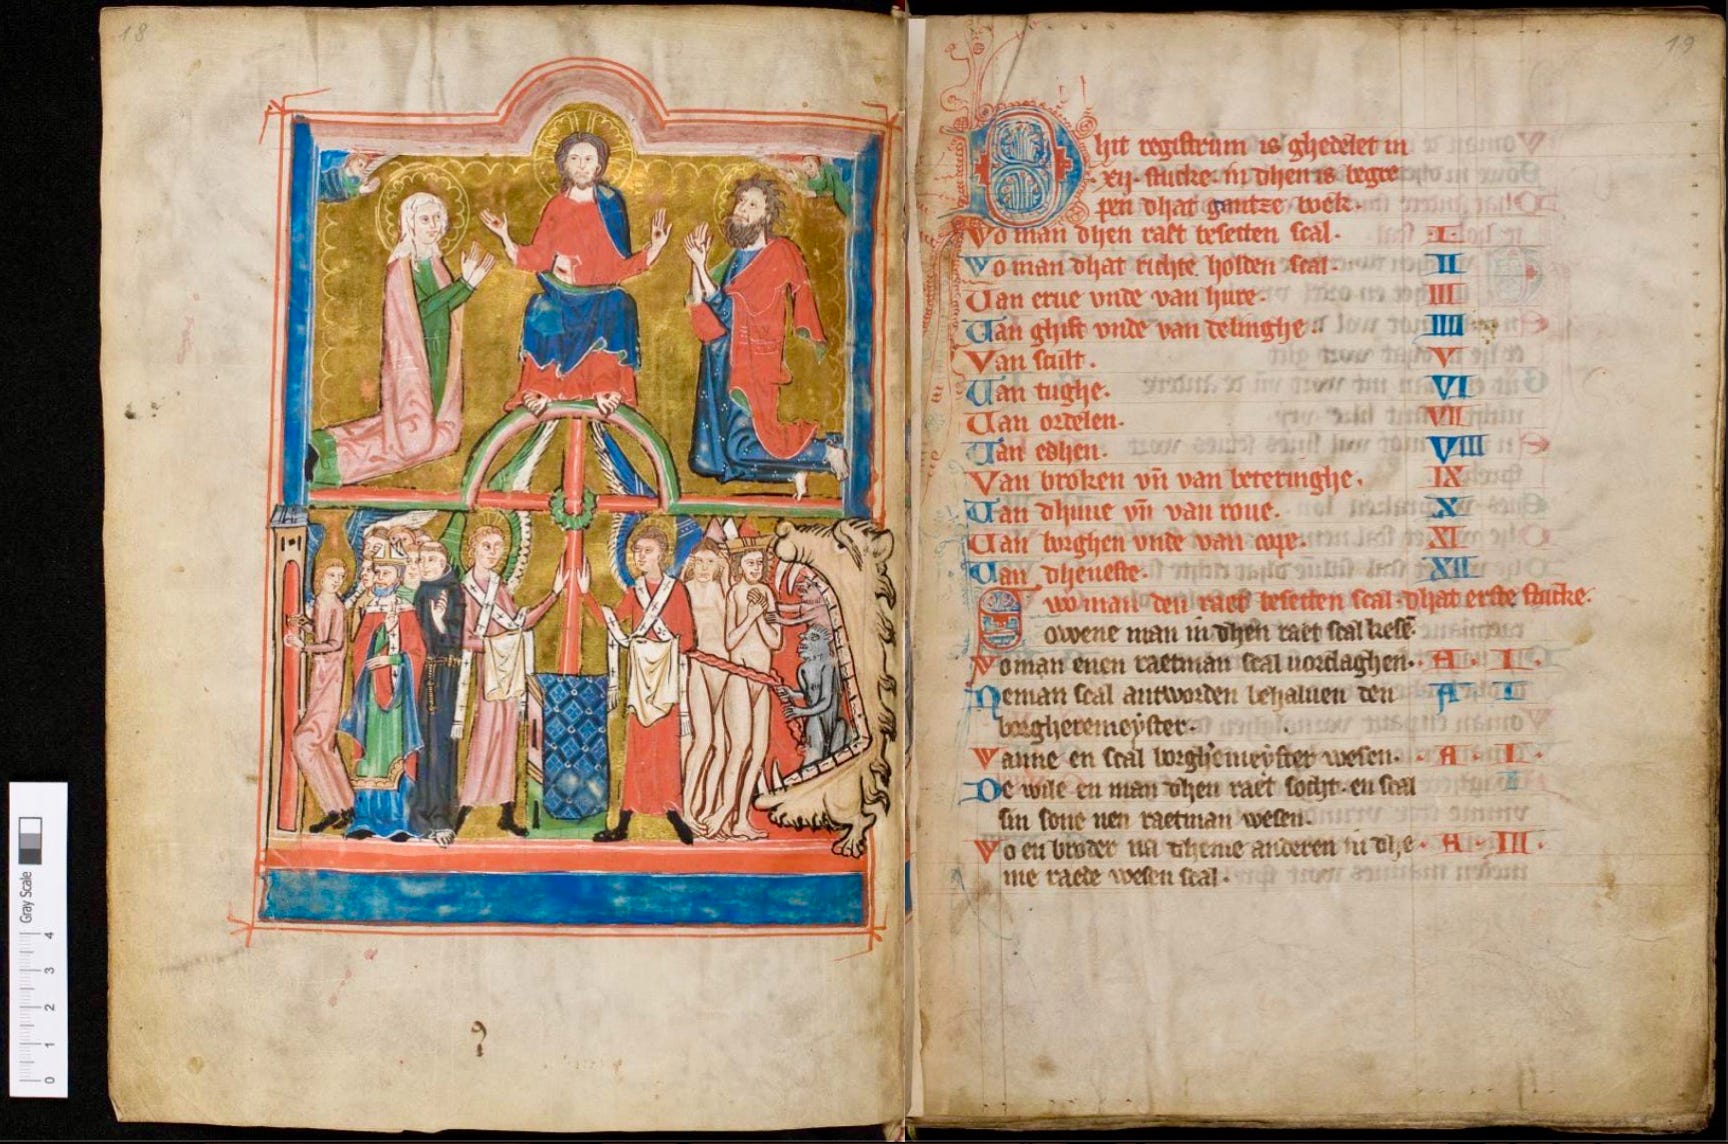 18
19
Dhit registrum is ghedelet in
xij· stucke· in dhen is begre
pen dhat gantze boek·
Wo man dhen raet besetten scal· I·
Wo man dhat richte holden scal· II
Van erue vnde van hure· III
Van ghift vnde van delinghe· IIII
Van scult· V
Van tughe· VI
Van ordelen· VII
Van edhen· VIII
Van broken vn̄ van beteringhe· IX
Van dhuue vn̄ van roue· X
Van borghen vnde van cope· XI
Van dheneste· XII
Wo man den raet besetten scal· dhat erste stucke·
Swene man in dhen raet scal kesē·
Wo man enen raetman scal uorslaghen· A· I·
Neman scal antworden behaluen den A I
borgheremeyster·
Wanne en scal borghemeyster wesen· A· I·
De wile en man dhen raet socht· en scal I
sin sone nen raetman wesen·
Wo en broder na dheme anderen in dhe· A· III·
me raede wesen scal·
Gray Scale
0 1 2 3 4